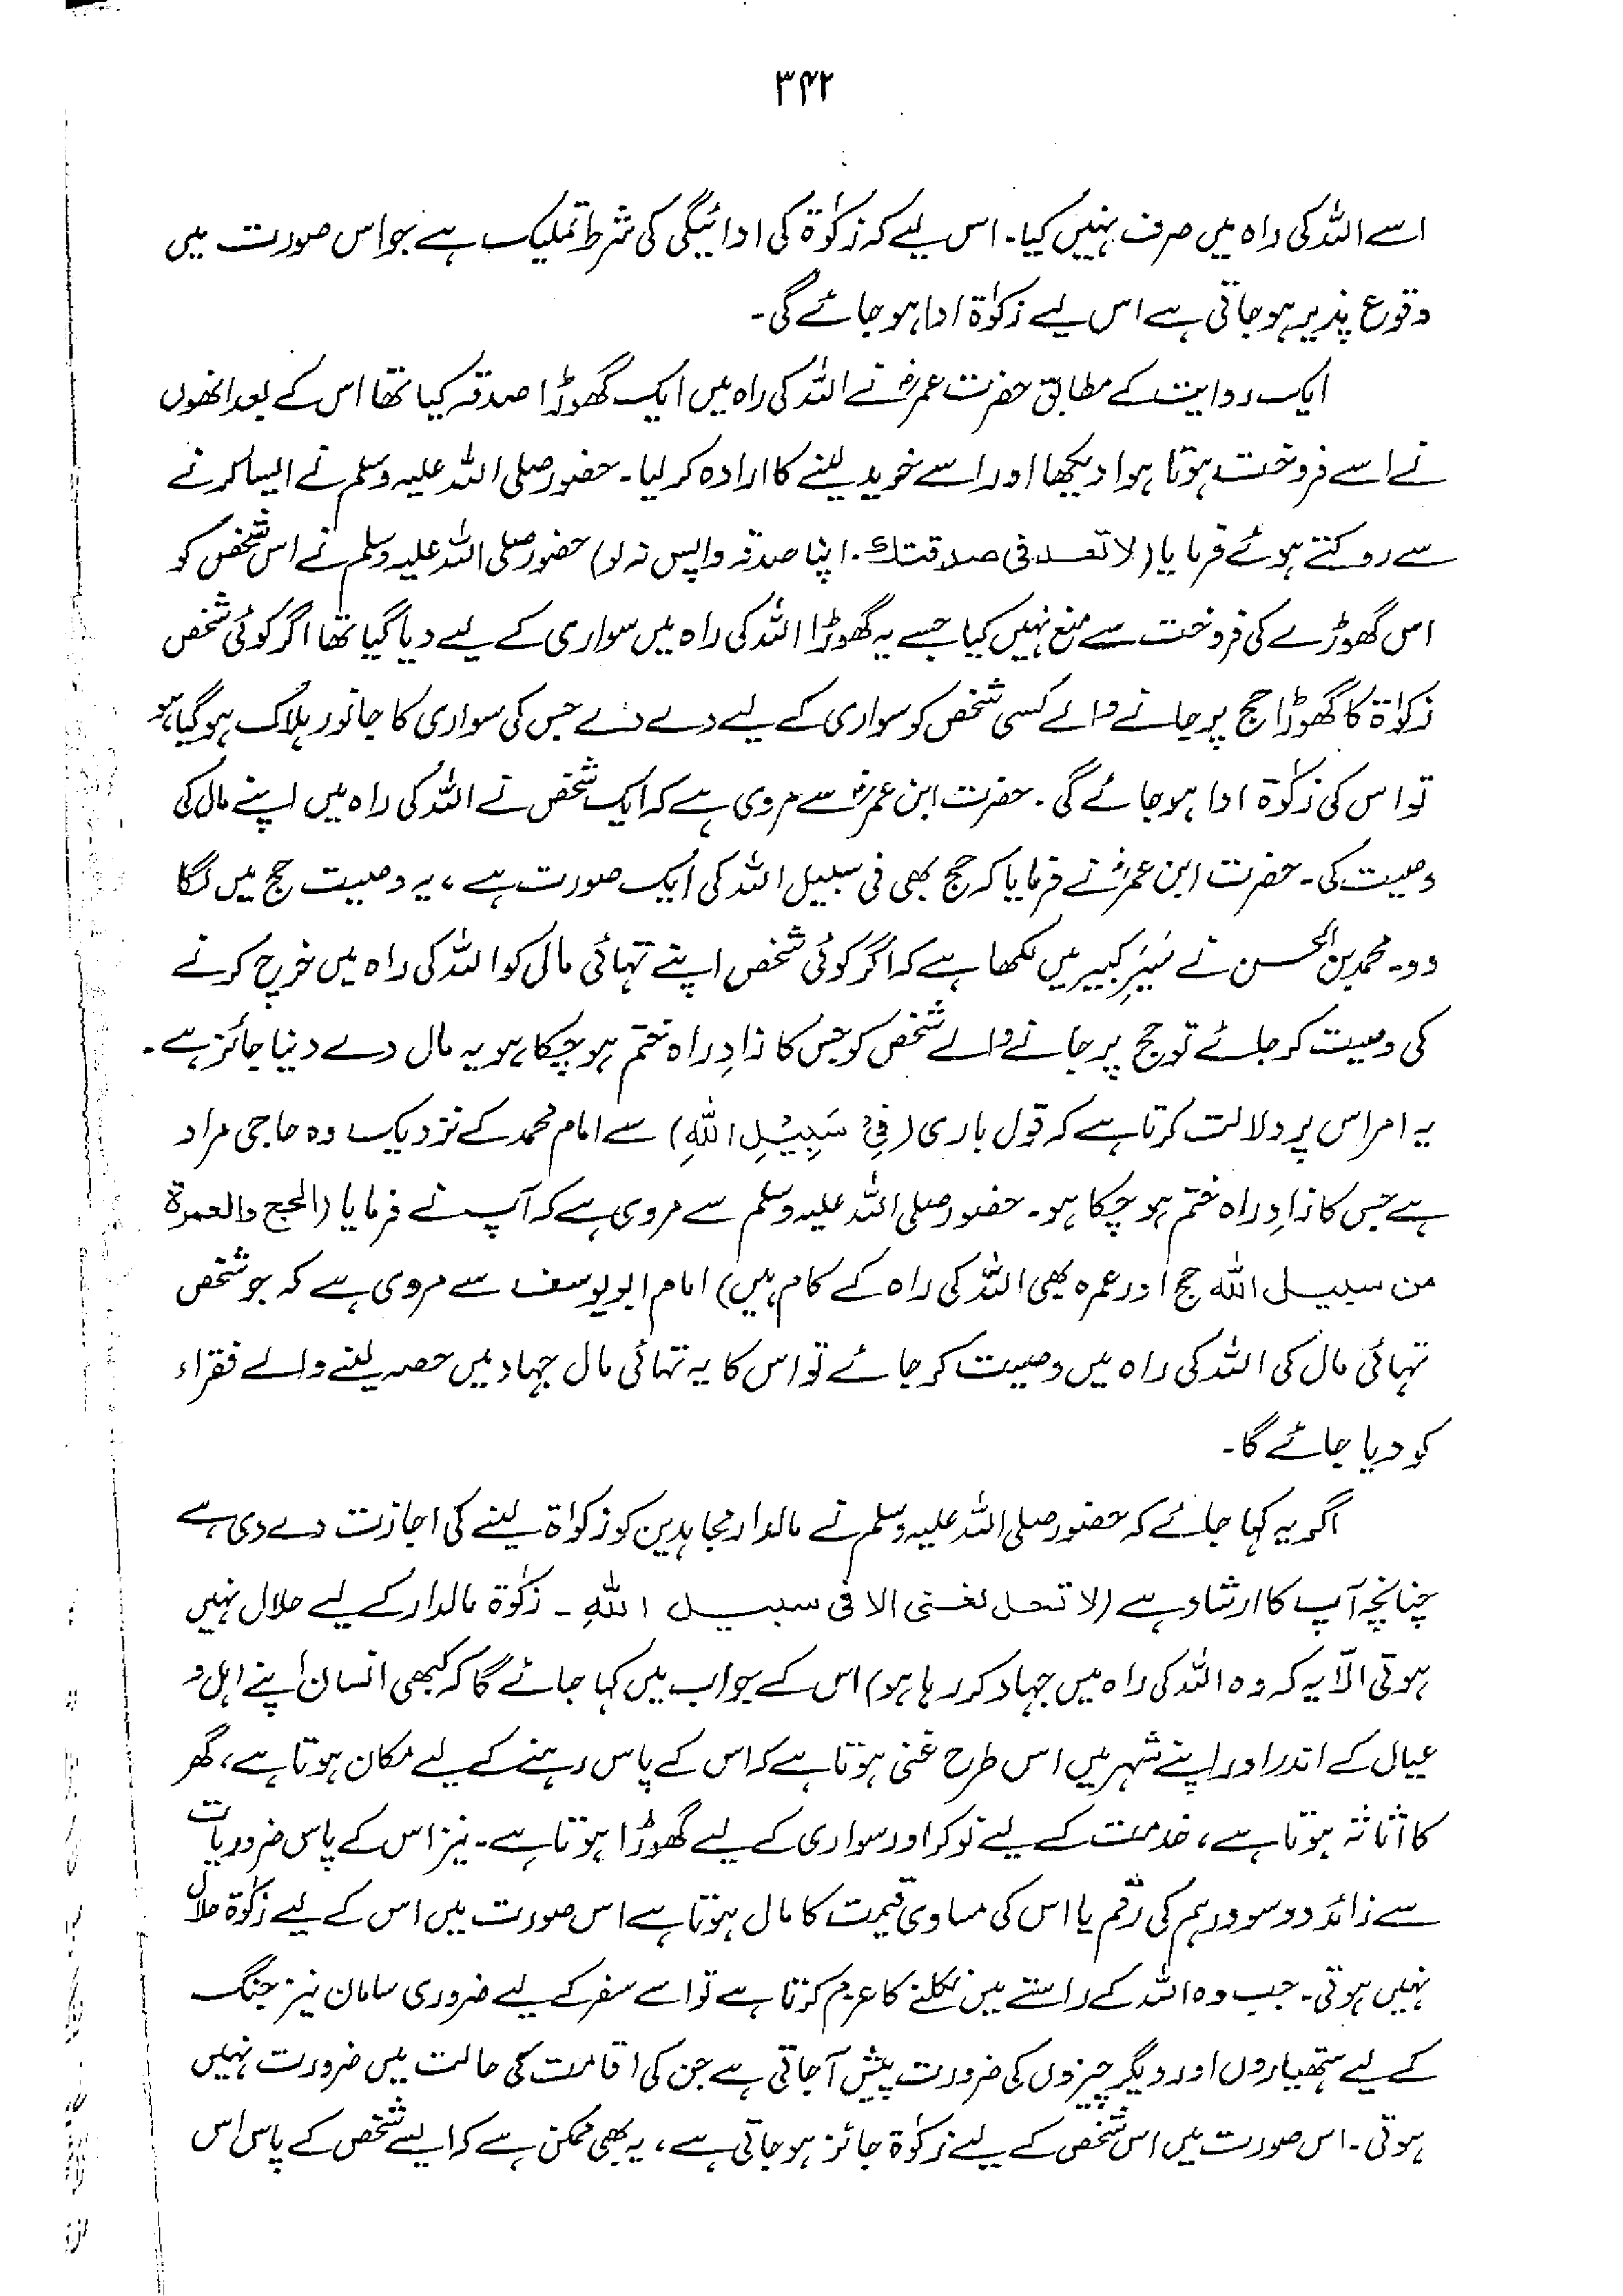 ۳۴۲
اسے اللہ کی راہ میں صرف نہیں کیا۔ اس لیے کہ زکوٰۃ کی ادائیگی کی شرط تملیک ہے جو اس صورت میں
وقوع پذیر ہو جاتی ہے اس لیے زکوٰۃ ادا ہو جائے گی۔
ایک روایت کے مطابق حضرت عمرؓ نے اللہ کی راہ میں ایک گھوڑا صدقہ کیا تھا اس کے بعد انھوں
نے اسے فروخت ہوتا ہوا دیکھا اور اسے خرید لینے کا ارادہ کر لیا۔ حضور صلی اللہ علیہ وسلم نے ایسا کرنے
سے روکتے ہوئے فرمایا (لا تعد فی صدقتك۔ اپنا صدقہ واپس نہ لو) حضور صلی اللہ علیہ وسلم نے اس شخص کو
اس گھوڑے کی فروخت سے منع نہیں کیا جسے یہ گھوڑا اللہ کی راہ میں سواری کے لیے دیا گیا تھا اگر کوئی شخص
زکوٰۃ کا گھوڑا حج پر جانے والے کسی شخص کو سواری کے لیے دے دے جس کی سواری کا جانور ہلاک ہو گیا ہو
تو اس کی زکوٰۃ ادا ہو جائے گی۔ حضرت ابن عمرؓ سے مروی ہے کہ ایک شخص نے اللہ کی راہ میں اپنے مال کی
وصیت کی۔ حضرت ابن عمرؓ نے فرمایا کہ حج بھی فی سبیل اللہ کی ایک صورت ہے، یہ وصیت حج میں لگا
دو۔ محمد بن الحسن نے سِیَرِ کبیر میں لکھا ہے کہ اگر کوئی شخص اپنے تہائی مال کو اللہ کی راہ میں خرچ کرنے
کی وصیت کر جائے تو حج پر جانے والے شخص کو جس کا زادِ راہ ختم ہو چکا ہو یہ مال دے دینا جائز ہے۔
یہ امر اس پر دلالت کرتا ہے کہ قول باری (فِیْ سَبِیْلِ اللّٰهِ) سے امام محمد کے نزدیک وہ حاجی مراد
ہے جس کا زادِ راہ ختم ہو چکا ہو۔ حضور صلی اللہ علیہ وسلم سے مروی ہے کہ آپ نے فرمایا (الحج والعمرة
من سبیل اللّٰہ حج اور عمرہ بھی اللہ کی راہ کے کام ہیں) امام ابویوسف سے مروی ہے کہ جو شخص
تہائی مال کی اللہ کی راہ میں وصیت کر جائے تو اس کا یہ تہائی مال جہاد میں حصہ لینے والے فقراء
کو دیا جائے گا۔
اگر یہ کہا جائے کہ حضور صلی اللہ علیہ وسلم نے مالدار مجاہدین کو زکوٰۃ لینے کی اجازت دے دی ہے
چنانچہ آپ کا ارشاد ہے (لا تحل لغنی الا فی سبیل اللّٰهِ۔ زکوٰۃ مالدار کے لیے حلال نہیں
ہوتی الّا یہ کہ وہ اللہ کی راہ میں جہاد کر رہا ہو) اس کے جواب میں کہا جائے گا کہ کبھی انسان اپنے اہل و
عیال کے اندر اور اپنے شہر میں اس طرح غنی ہوتا ہے کہ اس کے پاس رہنے کے لیے مکان ہوتا ہے، گھر
کا اثاثہ ہوتا ہے، خدمت کے لیے نوکر اور سواری کے لیے گھوڑا ہوتا ہے۔ نیز اس کے پاس ضروریات
سے زائد دو سو درہم کی رقم یا اس کی مساوی قیمت کا مال ہوتا ہے اس صورت میں اس کے لیے زکوٰۃ حلال
نہیں ہوتی۔ جب وہ اللہ کے راستے میں نکلنے کا عزم کرتا ہے تو اسے سفر کے لیے ضروری سامان نیز جنگ
کے لیے ہتھیاروں اور دیگر چیزوں کی ضرورت پیش آجاتی ہے جن کی اقامت کی حالت میں ضرورت نہیں
ہوتی۔ اس صورت میں اس شخص کے لیے زکوٰۃ جائز ہو جاتی ہے، یہ بھی ممکن ہے کہ ایسے شخص کے پاس اس